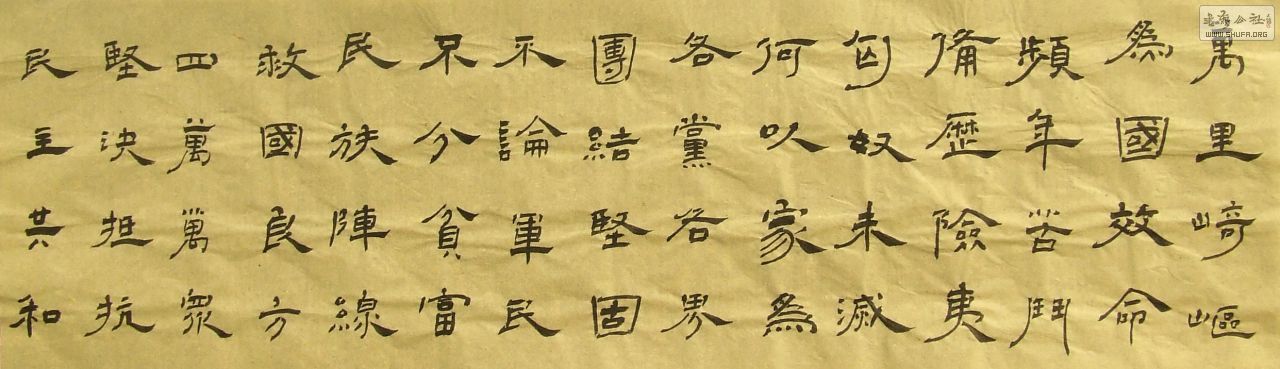 萬里崎嶇
為國效命
頻年苦鬥
備歷險夷
匈奴未滅
何以家為
各黨各界
團結堅固
不論軍民
不分貧富
民族陣線
救國良方
四萬萬眾
堅決抵抗
民主共和
書法公社
WWW.SHUFA.ORG